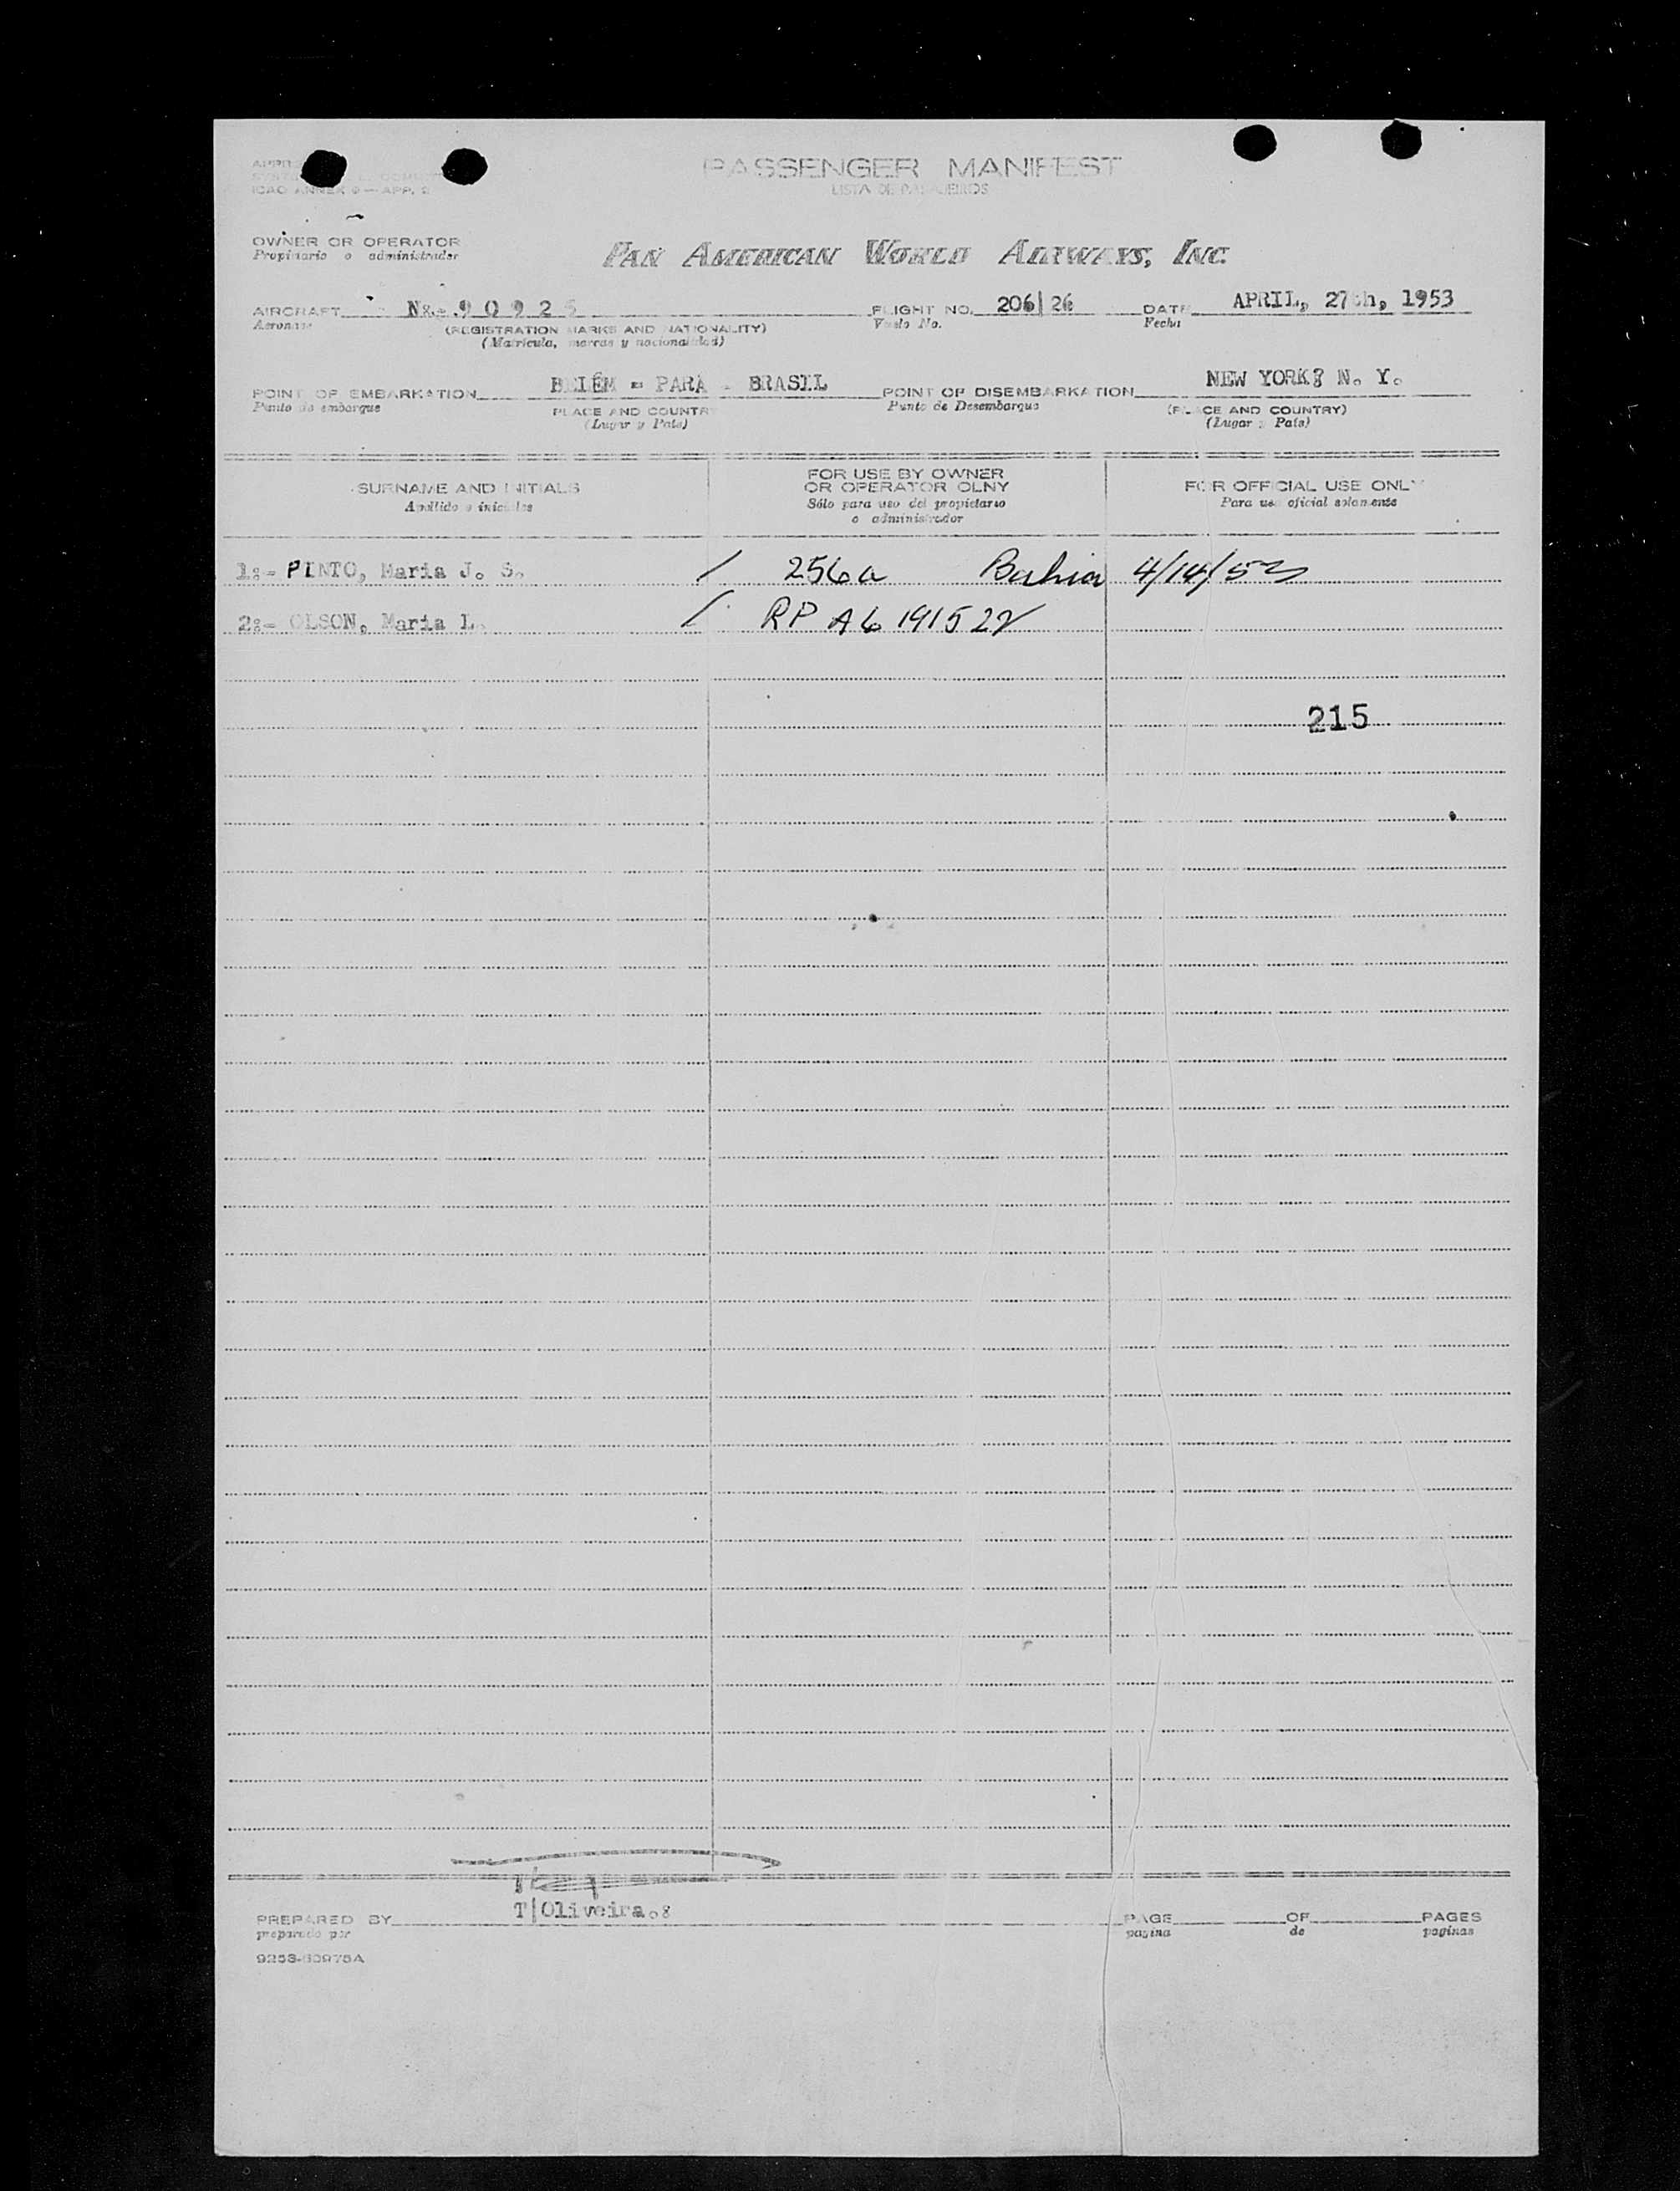 PASSENGER MANIFEST
LISTA DE PASAJEIROS
ICAO ANNEX 9 — APP. 2
OWNER OR OPERATOR
Propietario o administrador
PAN AMERICAN WORLD AIRWAYS, INC.
AIRCRAFT N:- 9 0 9 2 5 FLIGHT NO. 206|26 DATE APRIL, 27th, 1953
Aeronave (REGISTRATION MARKS AND NATIONALITY) Vuelo No. Fecha
(Matrícula, marcas y nacionalidad)
POINT OF EMBARKATION BELÉM - PARÁ - BRASIL POINT OF DISEMBARKATION NEW YORK: N. Y.
Punto de embarque PLACE AND COUNTRY Punto de Desembarque (PLACE AND COUNTRY)
(Lugar y País) (Lugar y País)
SURNAME AND INITIALS
Apellido e iniciales
FOR USE BY OWNER
OR OPERATOR OLNY
Sólo para uso del propietario
o administrador
FOR OFFICIAL USE ONLY
Para uso oficial solamente
1:- PINTO, Maria J. S. / 256a Bahia 4/14/53
2:- OLSON, Maria L. / RP A6 191522
215
T|Oliveira.:
PREPARED BY PAGE OF PAGES
preparado por pagina de paginas
9253-60975A